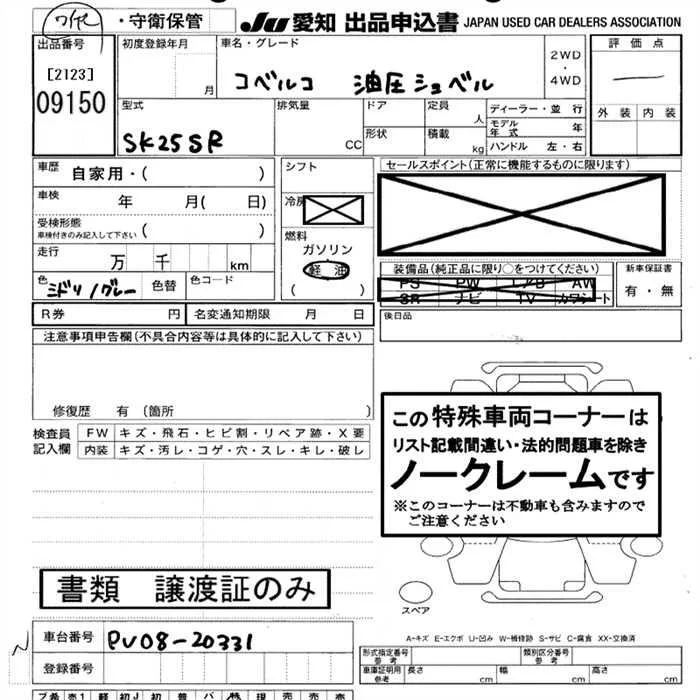 ・守衛保管 JU 愛知 出品申込書 JAPAN USED CAR DEALERS ASSOCIATION
出品番号 初度登録年月 車名・グレード 評価点
[2123] 月 コベルコ 油圧ショベル 2WD・4WD
09150 外装 内装
型式 排気量 ドア 定員 ディーラー・並行
人 モデル年式 年
SK25SR CC 形状 積載 kg ハンドル 左・右
車歴 自家用・( ) シフト セールスポイント(正常に機能するものに限ります)
車検 年 月( 日) 冷房
受検形態 車検付きのみ記入して下さい ( ) 燃料
ガソリン
走行 万 千 km 軽油 装備品(純正品に限り○をつけてください) 新車保証書
色 ミドリ/グレー 色替 色コード ( ) PS PW エアB AW 有・無
SR ナビ TV カワシート
R券 円 名変通知期限 月 日 後日品
注意事項申告欄(不具合内容等は具体的に記入して下さい)
修復歴 有 (箇所 )
検査員 FW キズ・飛石・ヒビ割・リペア跡・X要
記入欄 内装 キズ・汚レ・コゲ・穴・スレ・キレ・破レ
この特殊車両コーナーは
リスト記載間違い・法的問題車を除き
ノークレームです
※このコーナーは不動車も含みますので
ご注意ください
書類 譲渡証のみ
スペア
A-キズ E-エクボ U-凹み W-補修跡 S-サビ C-腐食 XX-交換済
車台番号 PV08-20331
登録番号
形式指定番号 参考 類別区分番号 参考
車庫証明用 参考 長さ cm 幅 cm 高さ cm